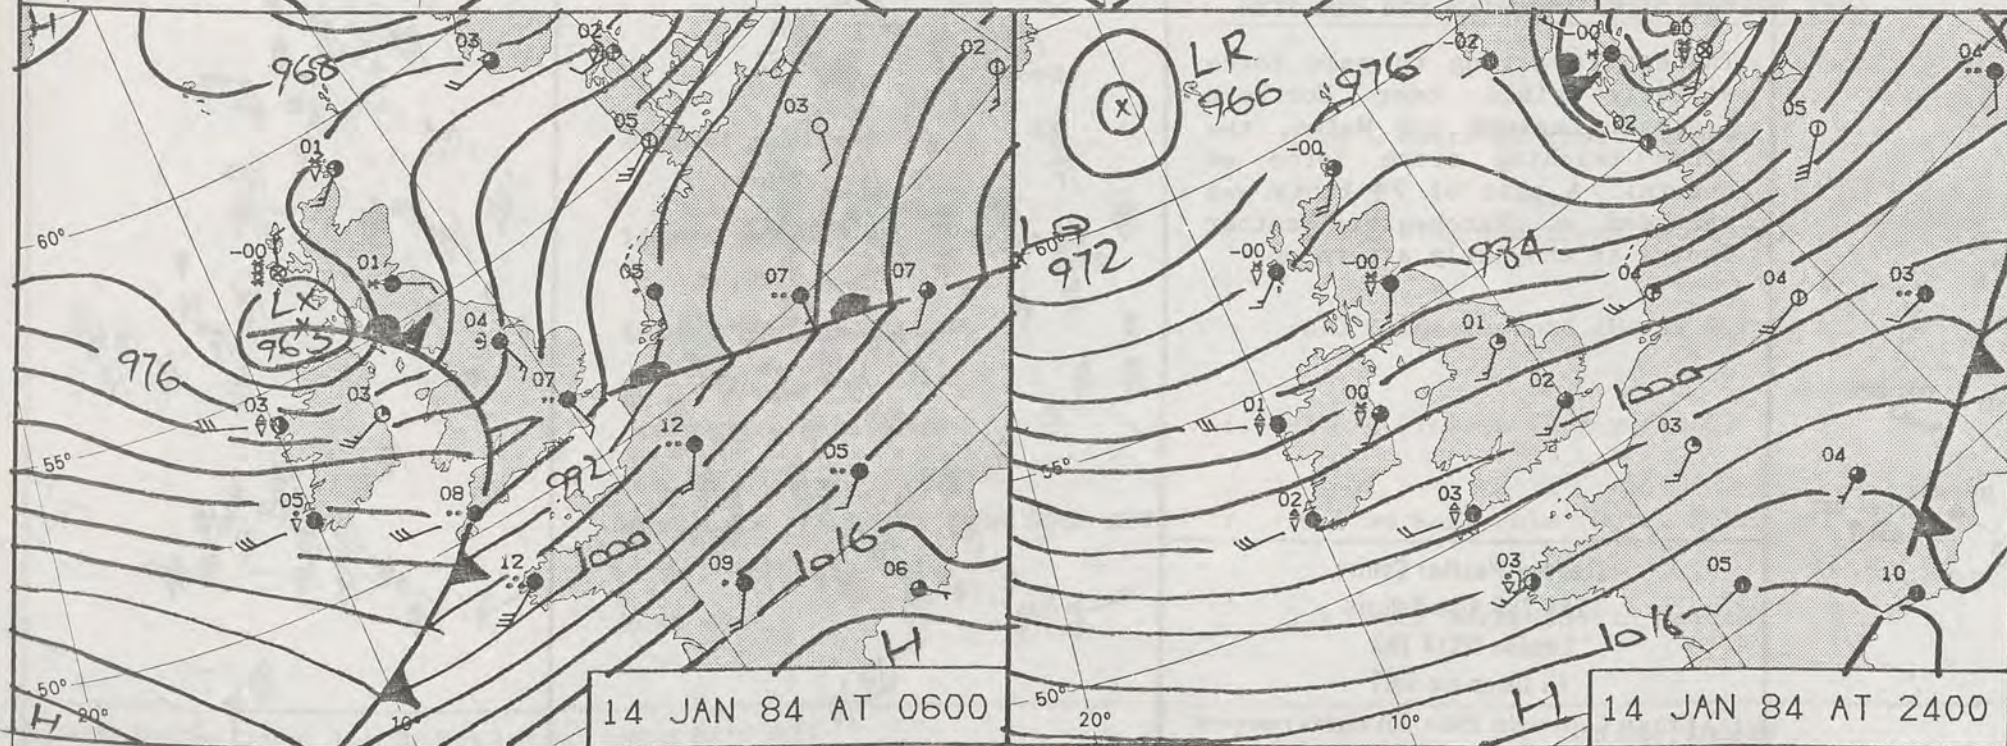 H
968
03
02
02
03
05
01
60°
-00
01
LX
965
05
07
07
04
976
07
03
03
12
05
55°
992
05
08
1000
12
09
1016
06
H
50°
H
20°
10°
14 JAN 84 AT 0600
LR
966
976
-02
-00
00
L
04
05
02
-00
60°
972
-00
-00
984
04
04
03
01
00
02
1000
01
03
04
55°
02
03
03
05
10
1016
50°
20°
10°
H
14 JAN 84 AT 2400